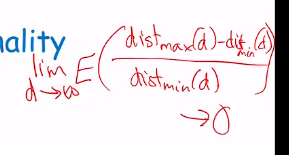 nality
lim d→∞ E ( (dist_max(d) - dist_min(d)) / dist_min(d) )
→ 0